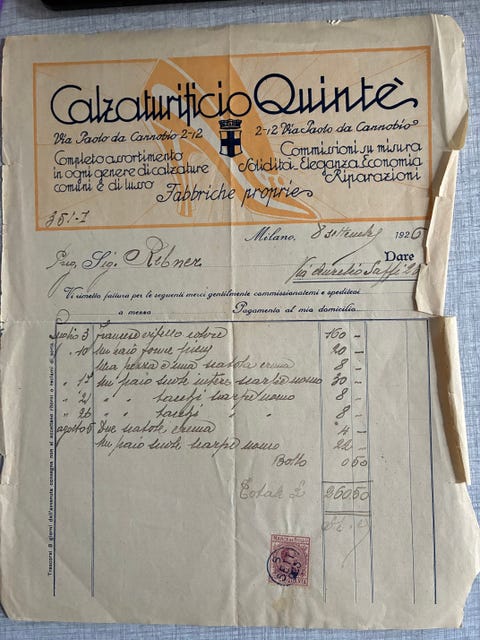 Calzaturificio Quintè
Via Paolo da Cannobio 2-12
2-12 Via Paolo da Cannobio
Completo assortimento
in ogni genere di calzature
comuni e di lusso
Commissioni su misura
Solidità. Eleganza. Economia
Riparazioni
Fabbriche proprie
Milano, 8 1926
Sig. Ribner Dare
Via Aurelio Saffi
Vi rimetto fattura per le seguenti merci gentilmente commissionatemi e speditevi
a mezzo Pagamento al mio domicilio
Luglio 3 160 -
" 10 Un paio forme 20 -
Una pezza e una scatola crema 8 -
" 17 Un paio suole intere scarpe uomo 30 -
" 21 " " tacchi scarpe uomo 8 -
" 26 " " tacchi " " 8 -
agosto 5 Due scatole crema 4 -
Un paio suole scarpe uomo 22 -
Bollo 0 50
Totale £ 260 50
Trascorsi 8 giorni dall'avvenuta consegna non si accettano ritorni o reclami di sorta.